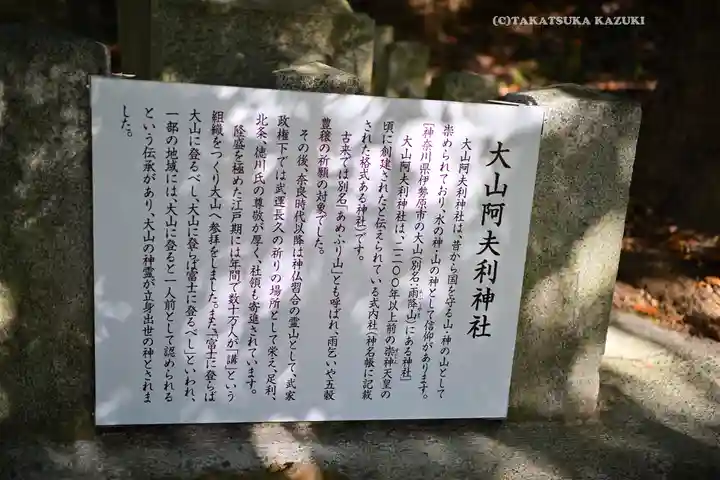 (C)TAKATSUKA KAZUKI
大山阿夫利神社
大山阿夫利神社は、昔から国を守る山・神の山として
崇められており、水の神・山の神として信仰があります。
［神奈川県伊勢原市の大山（別名：雨降山）にある神社］
大山阿夫利神社は、二二〇〇年以上前の崇神天皇の
頃に創建されたと伝えられている式内社（神名帳に記載
された格式ある神社）です。
古来では別名「あめふり山」とも呼ばれ、雨乞いや五穀
豊穣の祈願の対象でした。
その後、奈良時代以降は神仏習合の霊山として、武家
政権下では武運長久の祈りの場所として栄え、足利、
北条、徳川氏の尊敬が厚く、社領も寄進されています。
隆盛を極めた江戸期には年間で数十万人が「講」という
組織をつくり大山へ参拝をしました。また、「富士に登らば
大山に登るべし、大山に登らば富士に登るべし」といわれ、
一部の地域には、「大山に登ると一人前として認められる
という伝承があり、大山の神霊が立身出世の神とされま
した。